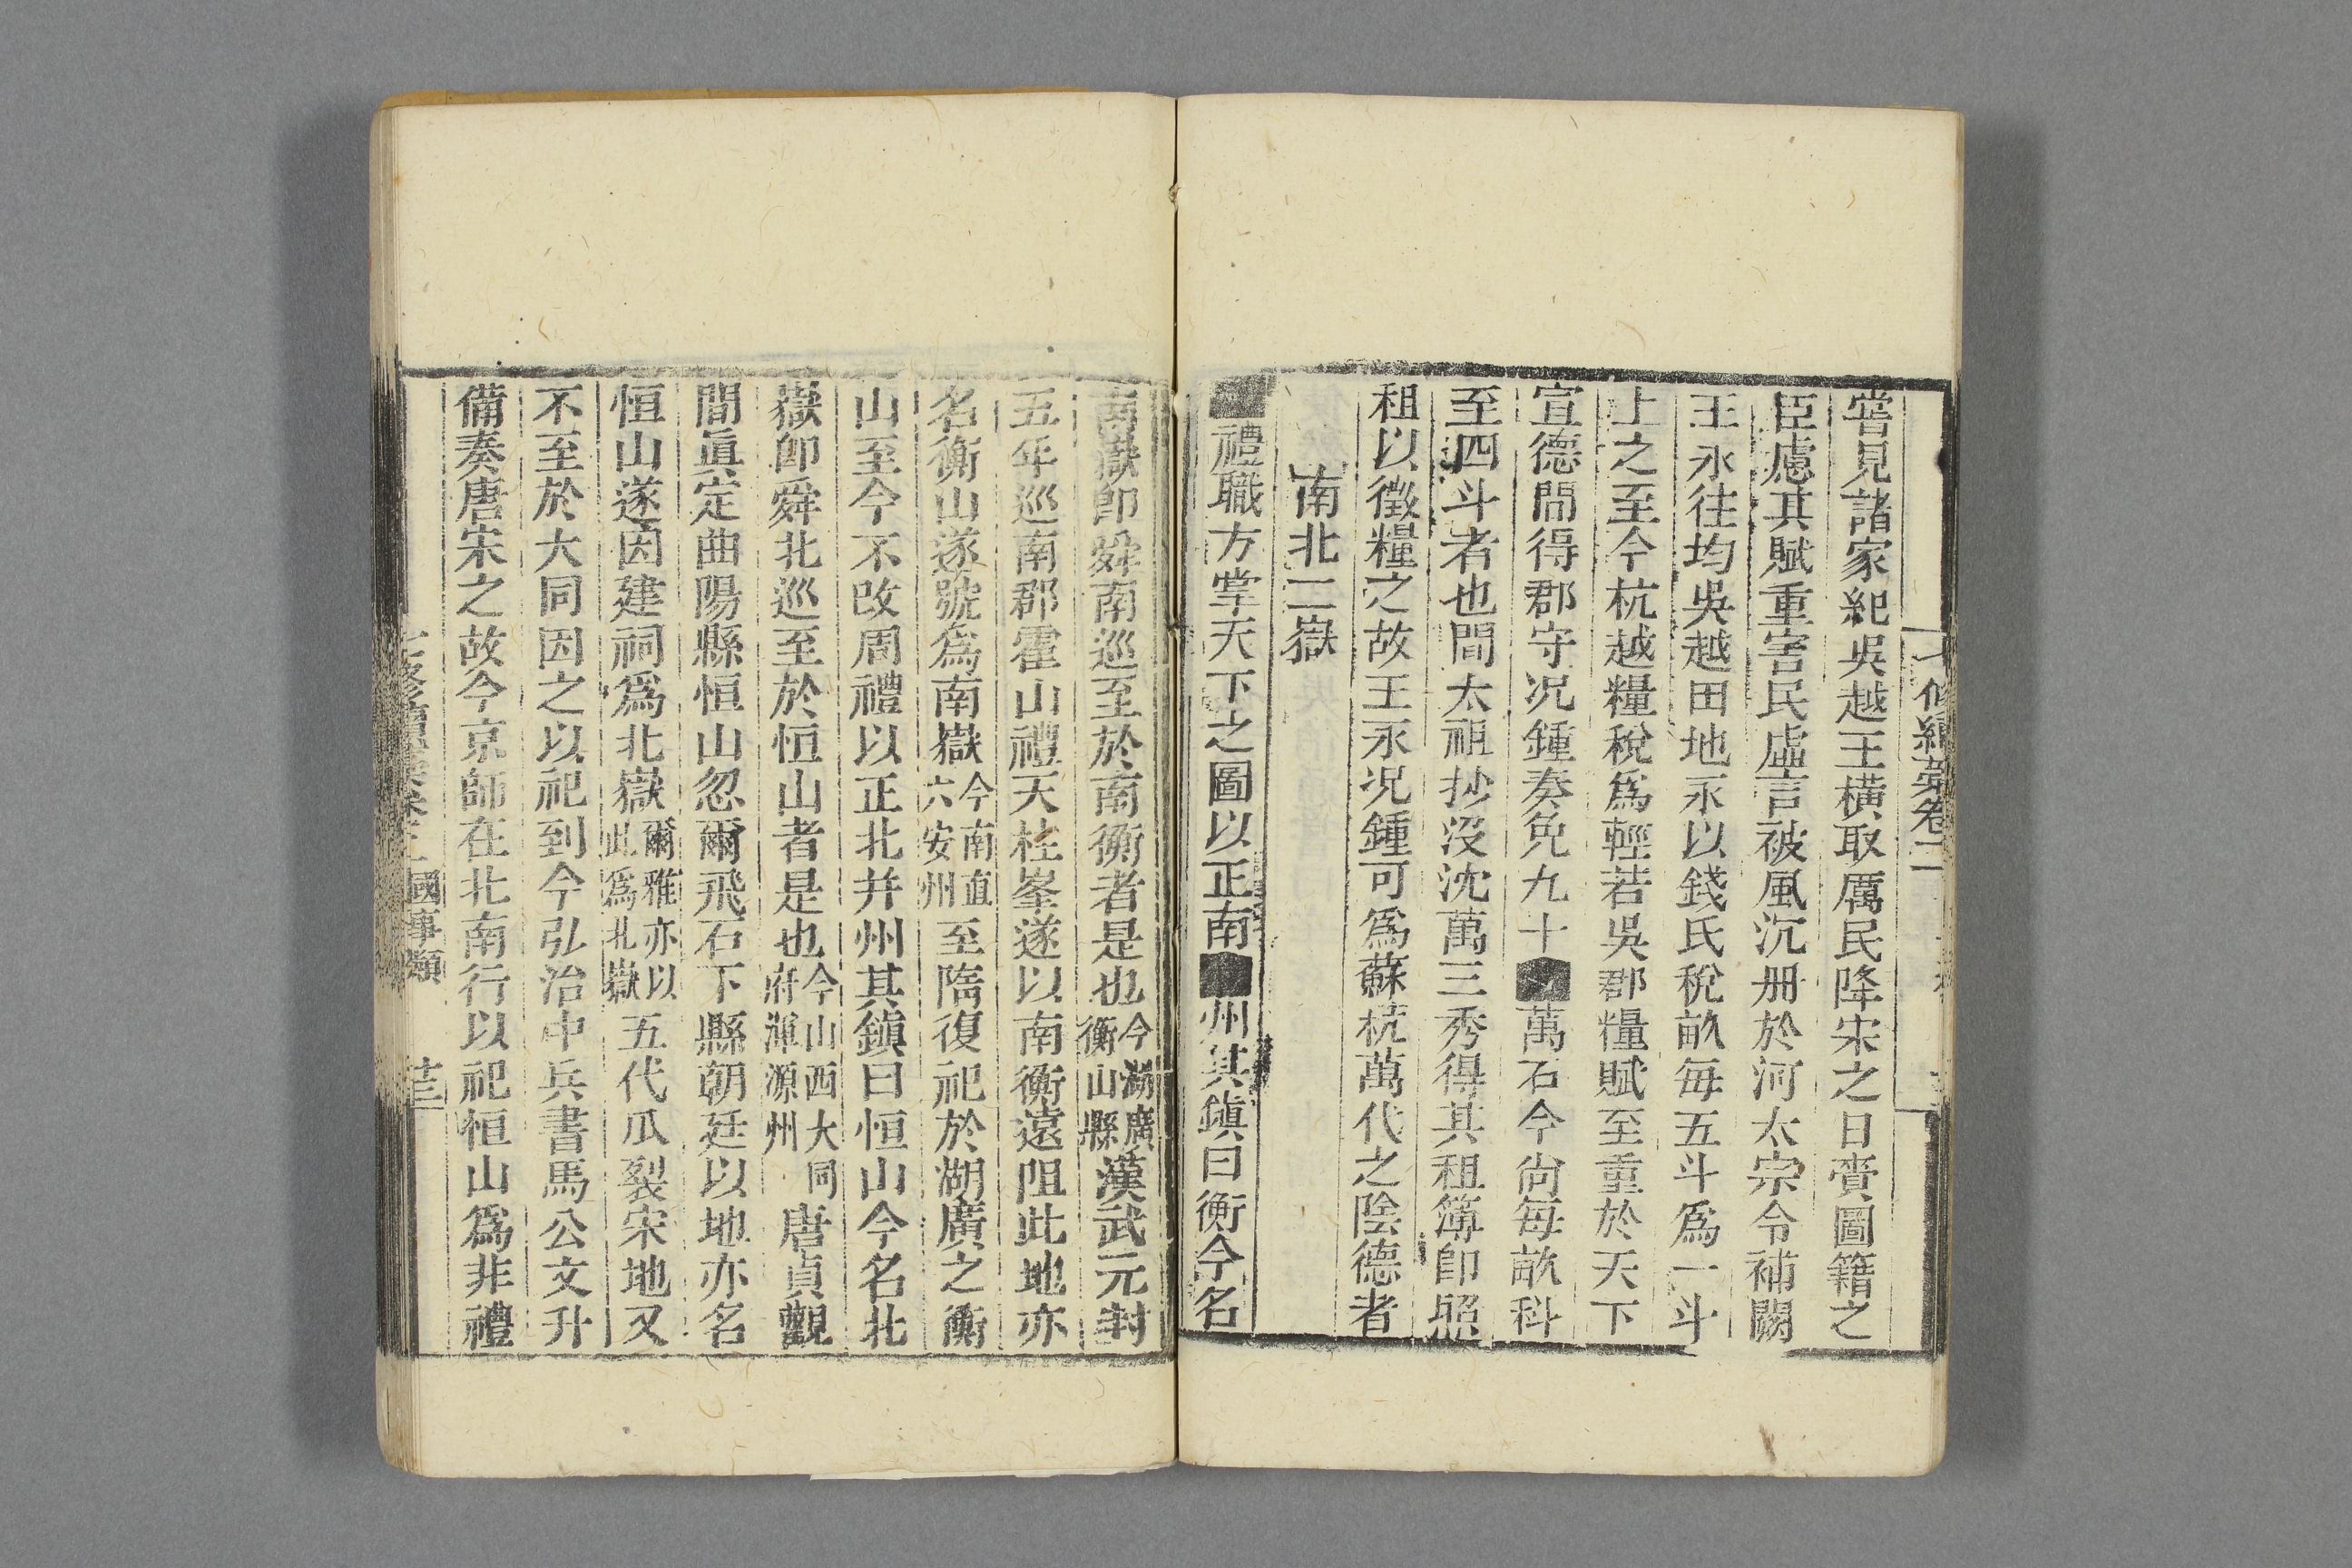 七修續藁卷二
嘗見諸家紀吳越王橫取厲民降宋之日賫圖籍之
臣慮其賦重害民虛言被風沉册於河太宗令補闕
王永往均吳越田地永以錢氏稅畝每五斗爲一斗
上之至今杭越糧稅爲輕若吳郡糧賦至重於天下
宣德間得郡守况鍾奏免九十萬石今尙每畝科
至四斗者也間太祖抄沒沈萬三秀得其租簿卽照
租以徵糧之故王永况鍾可爲蘇杭萬代之陰德者
南北二嶽
禮職方掌天下之圖以正南州其鎭曰衡今名
南嶽卽舜南巡至於南衡者是也今湖廣衡山縣漢武元封
五年巡南郡霍山禮天柱峯遂以南衡遠阻此地亦
名衡山遂號爲南嶽今南直六安州至隋復祀於湖廣之衡
山至今不改周禮以正北并州其鎭曰恒山今名北
嶽卽舜北巡至於恒山者是也今山西大同府渾源州唐貞觀
間眞定曲陽縣恒山忽爾飛石下縣朝廷以地亦名
恒山遂因建祠爲北嶽爾雅亦以此爲北嶽五代瓜裂宋地又
不至於大同因之以祀到今弘治中兵書馬公文升
備奏唐宋之故今京師在北南行以祀恒山爲非禮
七修續藁卷二 國事類 十三